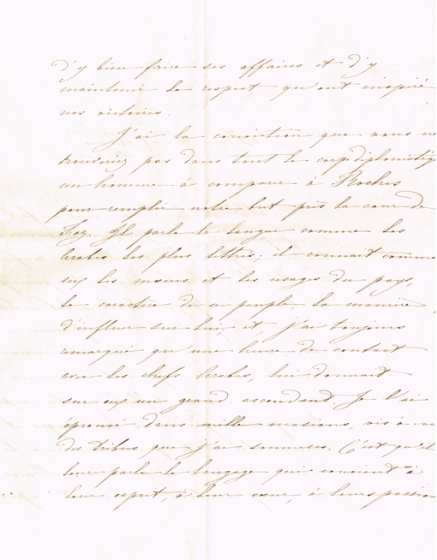 d'y bien faire ses affaires et d'y
maintenir le respect qu'ont inspiré
nos victoires.
J'ai la conviction que vous ne
trouveriez pas dans tout le corps diplomatiq
un homme à comparer à Roches
pour remplir notre but près la cour de
Fez. Il parle la langue comme les
arabes les plus lettrés; il connait comme
eux les mœurs et les usages du pays,
le caractère de ce peuple la manière
d'influer sur lui, et j'ai toujours
remarqué qu'une heure de contact
avec les chefs Arabes, lui donnait
sur eux un grand ascendant. Je l'ai
éprouvé dans mille occasions, vis à v
des tribus que j'ai soumises. C'est qu'il
leur parle le langage qui convient à
leur esprit, à leur cœur, à leurs passion